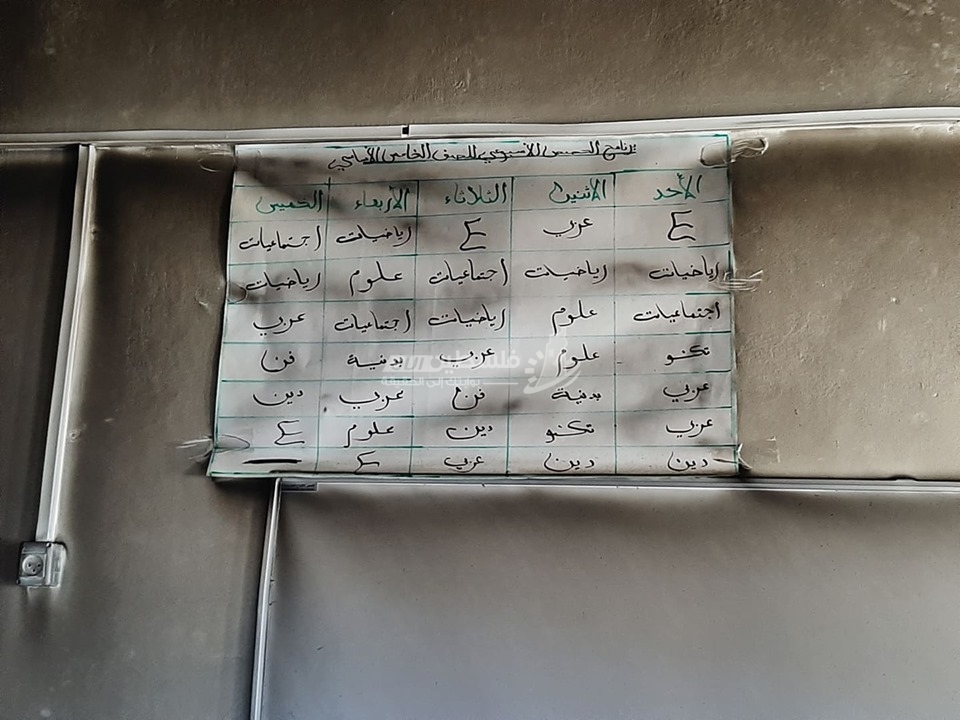 برنامج الحصص الأسبوعي للصف الخامس الأساسي
الأحد الاثنين الثلاثاء الأربعاء الخميس
E عربي E رياضيات اجتماعيات
رياضيات رياضيات اجتماعيات علوم رياضيات
اجتماعيات علوم رياضيات اجتماعيات عربي
تكنو علوم عربي بدنية فن
عربي بدنية فن عربي دين
عربي تكنو دين علوم E
دين دين عربي E -
فلسطين
بوابتك إلى الحقيقة